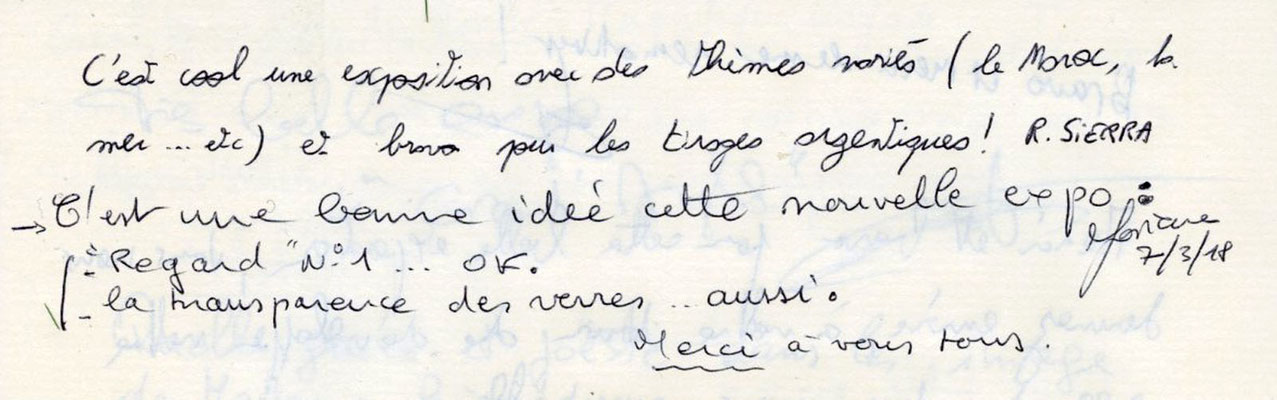 C'est cool une exposition avec des thèmes variés (le Maroc, la
mer ... etc) et bravo pour les tirages argentiques! R. SIERRA
→ C'est une bonne ideé cette nouvelle expo :
- "Regard" N°1 ... OK.
7/3/18
- la transparence des verres ... aussi.
Merci à vous tous.